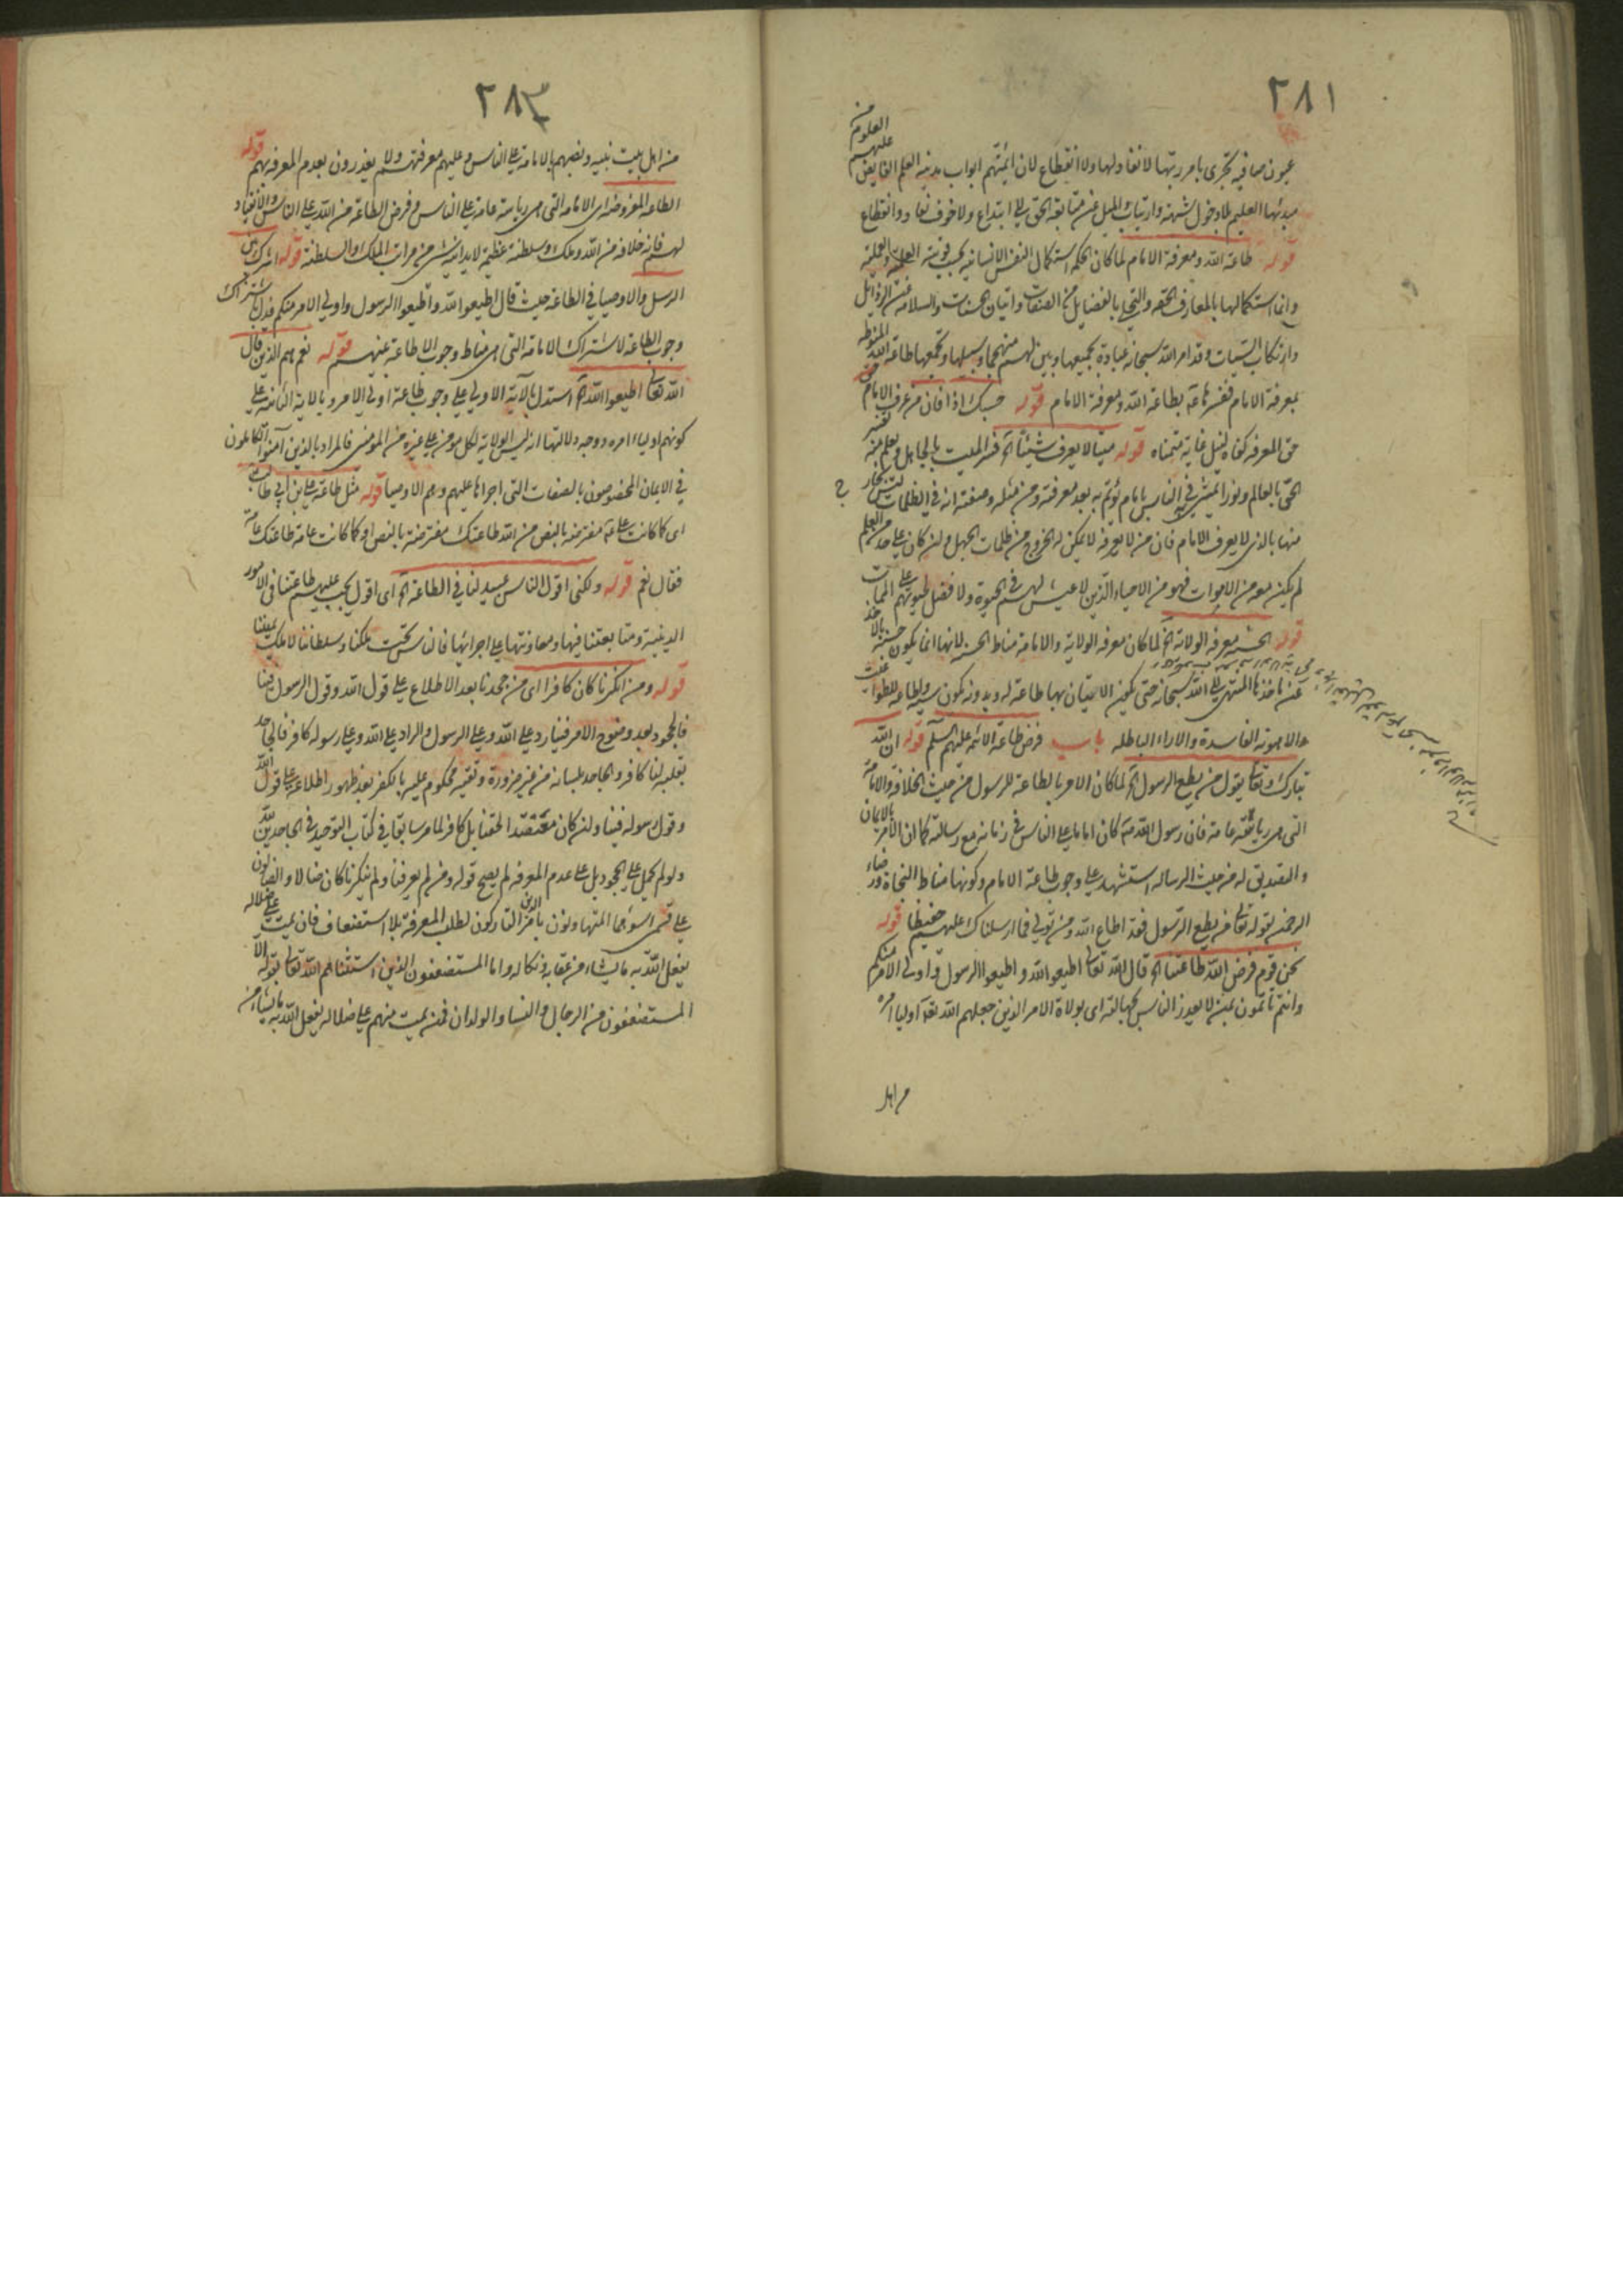 ٢٨١
عيون صافيه تجرى بامر ربها لا نفاد لها ولا انقطاع لان ائمتهم ابواب مدينه العلم الفايض عليهم العلوم من
مبدئها العليم فلا دخول شبهة وارتياب والميل عن متابعة الحق الى ابتداع ولا خوف نفاد وانقطاع
قوله طاعة الله ومعرفة الامام لما كان الحكم استكمال النفس الانسانيه بحسب قوتيه العلميه والعمليه
وانما استكمالها بالمعارف الحقه والتحلى بالفضايل من الصفات واتيان الحسنات والسلامة من الرذايل
وارتكاب السيئات وقد امر الله سبحانه عباده بجميعها وبين لهم منهجها وسبيلها ويجمعها طاعة الله المنوطه
بمعرفة الامام ففسرها بطاعة الله ومعرفة الامام قوله حسبك اذا فان من عرف الامام حق
حق المعرفه كفاه لنيل غاية متمناه قوله ميتا لا يعرف شيئا الخ فسر الميت بالجاهل ويعلم منه تفسير
الحى بالعالم ونورا يمشى به فى الناس بامام يؤتم به بعد معرفته ومن مثله وصفته انه فى الظلمات ليس بخارج
منها بالذى لا يعرف الامام فان من لا يعرفه لا يمكن له الخروج من ظلمات الجهل ولئن كان على حد من العلم
لم يكن معه من الاموات فهو من الاحياء الذين لا عيش لهم فى الحيوة ولا فضل لحيوتهم على الممات
قوله الحسنه معرفه الولاية الخ لما كان معرفه الولاية والامامة مناط الحسنه لانها انما يكون حسنة بالاخذ
عن ماخذها المنتهى الى الله سبحانه حتى يكون الاتيان بها طاعة له وبدونه يكون سيئة واطاعه للطواغيت
والاهوية الفاسدة والاراء الباطله باب فرض طاعة الائمه عليهم السلم قوله ان الله
تبارك وتعالى يقول من يطع الرسول الخ لما كان الامر بالطاعة للرسول من حيث الخلافة والامامة
التى هى رياسة عامة فان رسول الله كان اماما على الناس فى زمانه مع رسالته كما ان الامر بالايمان
والتصديق له من حيث الرساله استشهد على وجوب طاعة الامام وكونها مناط النجاة ورضاء
الرحمن بقوله تعالى من يطع الرسول فقد اطاع الله ومن تولى فما ارسلناك عليهم حفيظا قوله
نحن قوم فرض الله طاعتنا الخ قال الله تعالى اطيعوا الله واطيعوا الرسول واولى الامر منكم
وانتم تاتمون بمن لا يعذر الناس بجهالته اى بولاة الامر الذين جعلهم الله تعالى اولياء امره
من اهل
٢٨٢
من اهل بيت نبيه ونصبهم بالامامة على الناس وعليهم معرفتهم ولا يعذرون بعدم المعرفه بهم قوله
الطاعه المفروضه اى الامامه التى هى رياسة عامة على الناس وفرض الطاعة من الله على الناس والانقياد
لهم فانه خلافه من الله وملك وسلطنة عظيمة لا يدانيه شىء من مراتب الملك والسلطنة قوله اشرك بين
الرسل والاوصيا فى الطاعة حيث قال اطيعوا الله واطيعوا الرسول واولى الامر منكم فدل باشتراك
وجوب الطاعة لاشتراك الامامة التى هى مناط وجوب الاطاعة بينهم قوله نعم هم الذين قال
الله تعالى اطيعوا الله الخ استدل بالاية الاولى على وجوب طاعة اولى الامر وبالاية الثانية على
كونهم اولياء امره ووجه دلالتها انه ليس الولاية لكل مومن على غيره من المومنين فالمراد بالذين آمنوا الكاملون
فى الايمان المخصوصون بالصفات التى اجراها عليهم وهم الاوصيا قوله مثل طاعة على بن ابى طالب
اى كما كانت طاعة مفترضة بالنص من الله طاعتك مفترضة بالنص او كما كانت عامة طاعتك عامة
فقال نعم قوله ولكنى اقول الناس عبيد لنا فى الطاعة الخ اى اقول يجب عليهم طاعتنا فى الامور
الدينية ومتابعتنا فيها ومعاونتها على اجرائها فالناس تحت ملكنا وسلطاننا لا ملك يميننا
قوله ومن انكرنا كان كافرا اى من جحدنا بعد الاطلاع على قول الله وقول الرسول فينا
فالجحود بعد وضوح الامر فينا رد على الله وعلى الرسول والراد على الله وعلى رسوله كافر فالجاحد
بقلبه لنا كافر والجاحد بلسانه من غير ضرورة وتقيه محكوم عليه بالكفر بعد ظهور اطلاعه على قول الله
وقول رسوله فينا ولئن كان معتقدا لحقنا بل كافر لما مر سابقا فى كتاب التوحيد فى الجاحدين لله
ولو لم يحمل على الجحود بل على عدم المعرفه لم يصح قوله ومن لم يعرفنا ولم ينكرنا كان ضالا والضالون
على قسمين اسوأهما المتهاونون بامر الدين التاركون لطلب المعرفة بلا استضعاف فان يمت على ضلاله
يفعل الله به ما يشاء من عقابه ونكاله واما المستضعفون الذين استثناهم الله تعالى بقوله الا
المستضعفون من الرجال والنسا والولدان فمن يمت منهم على ضلاله يفعل الله به ما يشاء من